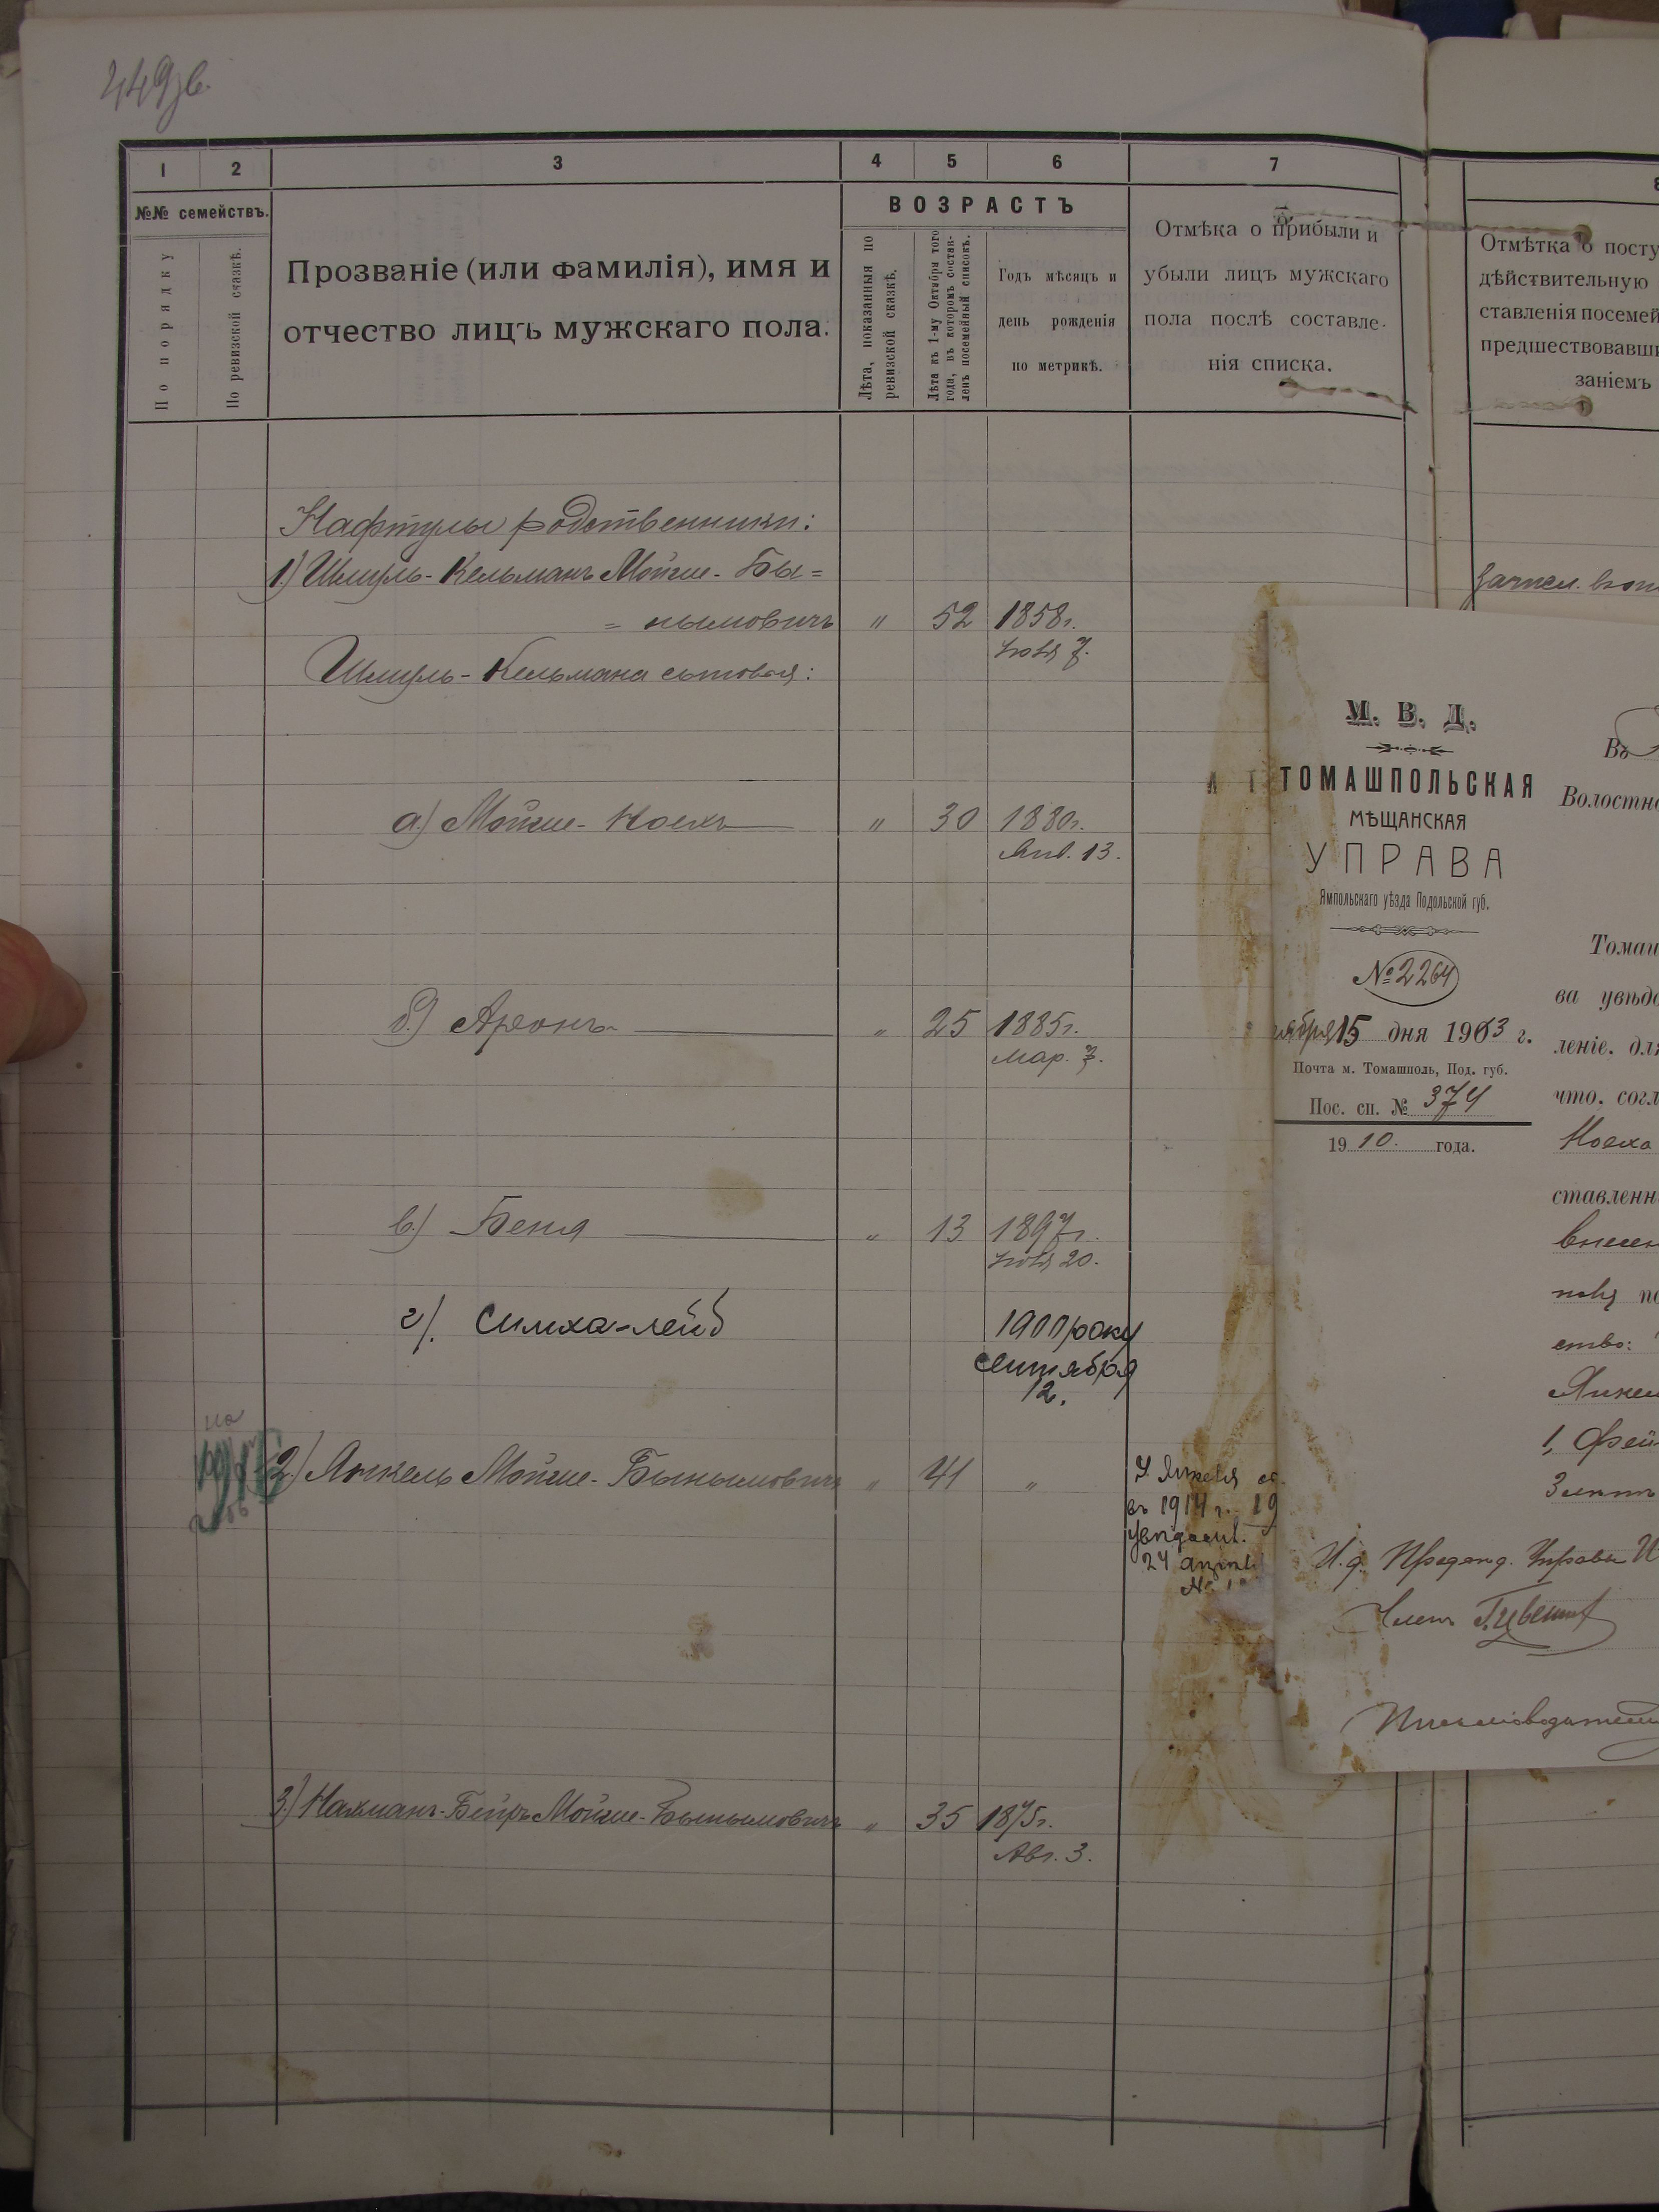 449зв.
1 2 3 4 5 6 7
№№ семействъ.
По порядку
По ревизской сказкѣ.
Прозваніе (или фамилія), имя и
отчество лицъ мужскаго пола.
ВОЗРАСТЪ
Лѣта, показанныя по
ревизской сказкѣ.
Лѣта къ 1-му Октября того
года, въ которомъ состав-
ленъ посемейный списокъ.
Годъ мѣсяцъ и
день рожденія
по метрикѣ.
Отмѣка о прибыли и
убыли лицъ мужскаго
пола послѣ составле-
нія списка.
Нафтулы родственники:
1.) Шмуль-Кельманъ Мойше-Бы=
= нымовичъ " 52 1858г.
Іюля 7.
Шмуль-Кельмана сыновья:
а.) Мойше-Ноехъ " 30 1880г.
Янв. 13.
б.) Аронъ " 25 1885г.
Мар. 7.
в.) Беня " 13 1897г.
Іюля 20.
г). Симха-лейб 1900 року
сентября
12.
на
2.) Янкель Мойше-Бынымовичъ " 41 "
У Янкеля
въ 1914 г. 19
увѣдомл.
24
№
3.) Нахманъ-Бейръ Мойше-Бынымовичъ " 35 1875г.
Авг. 3.
Отмѣтка о посту
дѣйствительную
ставленія посемей
предшествовавши
заніемъ
М. В. Д.
ТОМАШПОЛЬСКАЯ
МѢЩАНСКАЯ
УПРАВА
Ямпольскаго уѣзда Подольской губ.
№ 2264
ября 15 дня 1913 г.
Почта м. Томашполь, Под. губ.
Пос. сп. № 374
1910 года.
Въ
Волостно
Томаш
ва увѣдо
леніе. для
что. согл
Ноеха
ставленн
внесен
по
ство:
Янкел
1, Фей
И. д. Предсѣд. Управы
Членъ
Письмоводитель